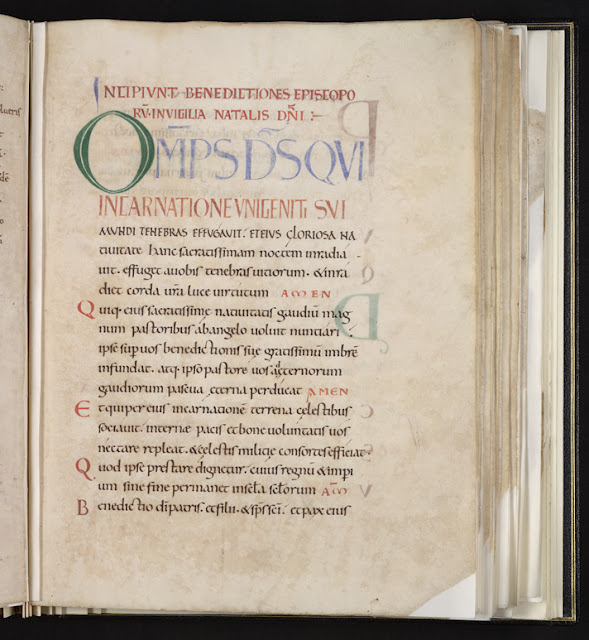 INCIPIVNT BENEDICTIONES EPISCOPO
RV̄ IN VIGILIA NATALIS DN̄I :-
OM̄PS D̄S QVI
INCARNATIONE VNIGENITI SVI
MVNDI TENEBRAS EFFVGAVIT. ET EIVS GLORIOSA NA
tiuitate hanc sacratissimam noctem inradia
uit. effuget auobis tenebras uitiorum. & inra
diet corda ur̄a luce uirtutum AMEN
Quiq; eius sacratissimę natiuitatis gaudiū mag
num pastoribus abangelo uoluit nuntiari.
ipse sup uos benedictionis suę gratissimū imbrē
infundat. atq; ipso pastore uos ad ęternorum
gaudiorum pascua ęterna perducat AMEN
Et quiper eius incarnationē terrena cęlestibus
sociauit. internę pacis et bonę uoluntatis uos
nectare repleat. & cęlestis militię consortes efficiat.
Quod ipse prestare dignetur. cuius regnū & imp̄i
um sine fine permanet insecl̄a secl̄orum AM̄
Benedictio dī patris. et filii. & sp̄s sc̄i. et pax eius